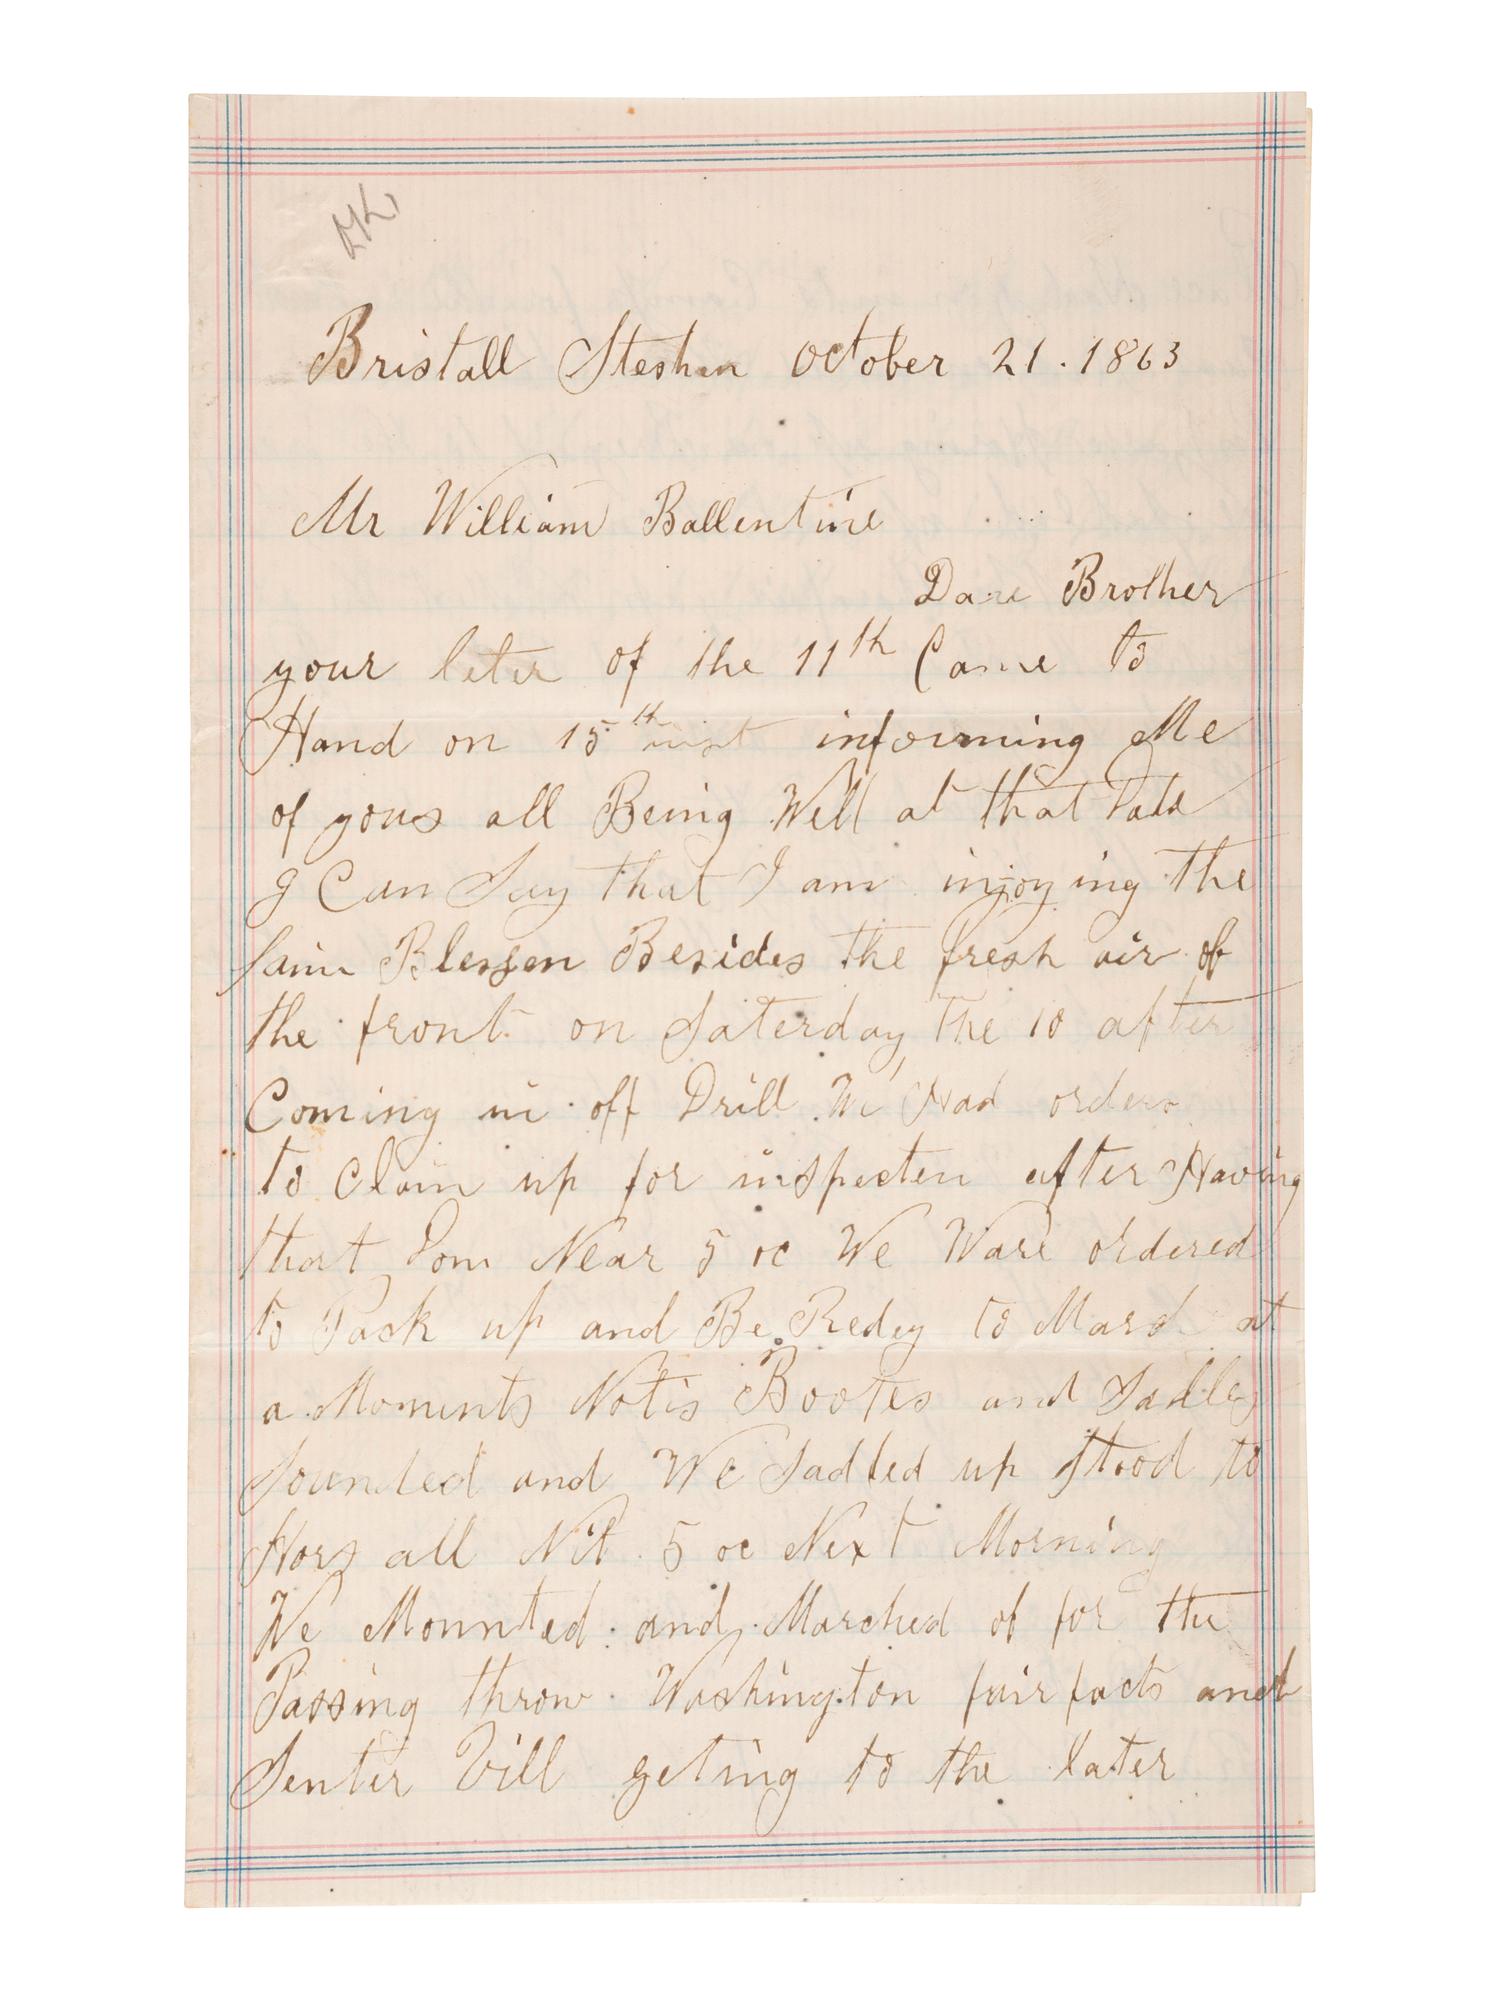 Bristall Steshen October 21. 1863
Mr William Ballentine
Dare Brother
your leter of the 11th Came to
Hand on 15th inst informing Me
of yous all Being Well at that Date
I Can Say that I am injoying the
Saim Blessen Besides the fresh air of
the front on Saterday The 10 after
Coming in off Drill We Had orders
to Clain up for inspecten after Having
that Don Near 5 oc We Ware ordered
to Pack up and Be Redey to March at
a Moments Notis Bootes and Sadles
Sounded and We Sadled up Stood to
Hors all Nit 5 oc Next Morning
We Mounted and Marched of for the
Passing throw Washington fairfacts and
Senter Vill geting to the later